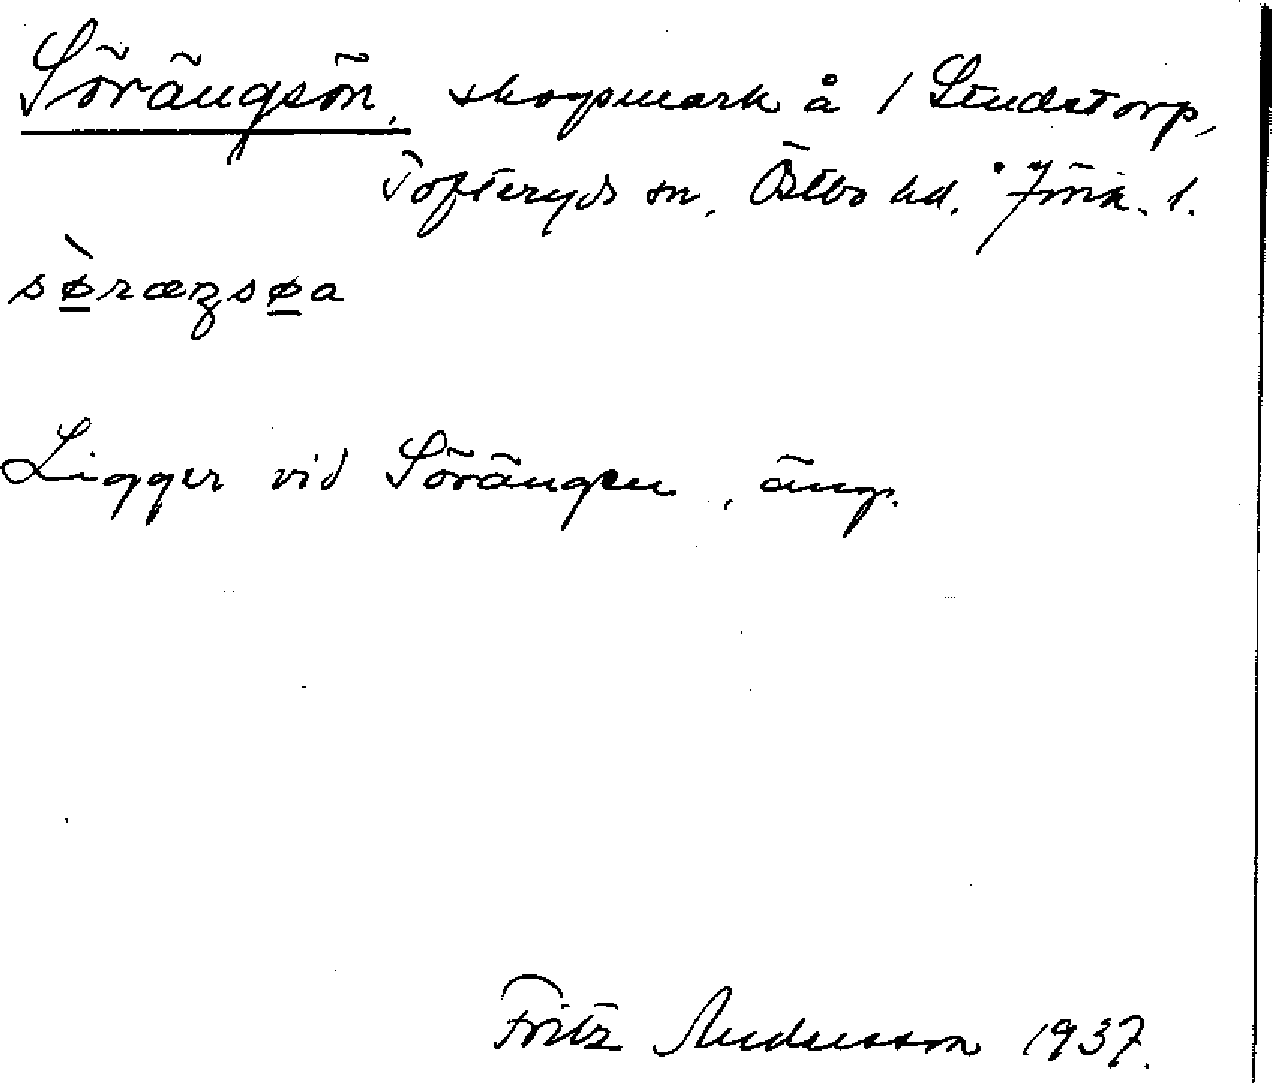 Sörängsön, skogsmark å 1 Studstorp,
Tofteryds sn, Östbo hd. Jönk. l.
sø̀ræŋsøa
Ligger vid Sörängen, äng.
Fritz Andersson 1937.